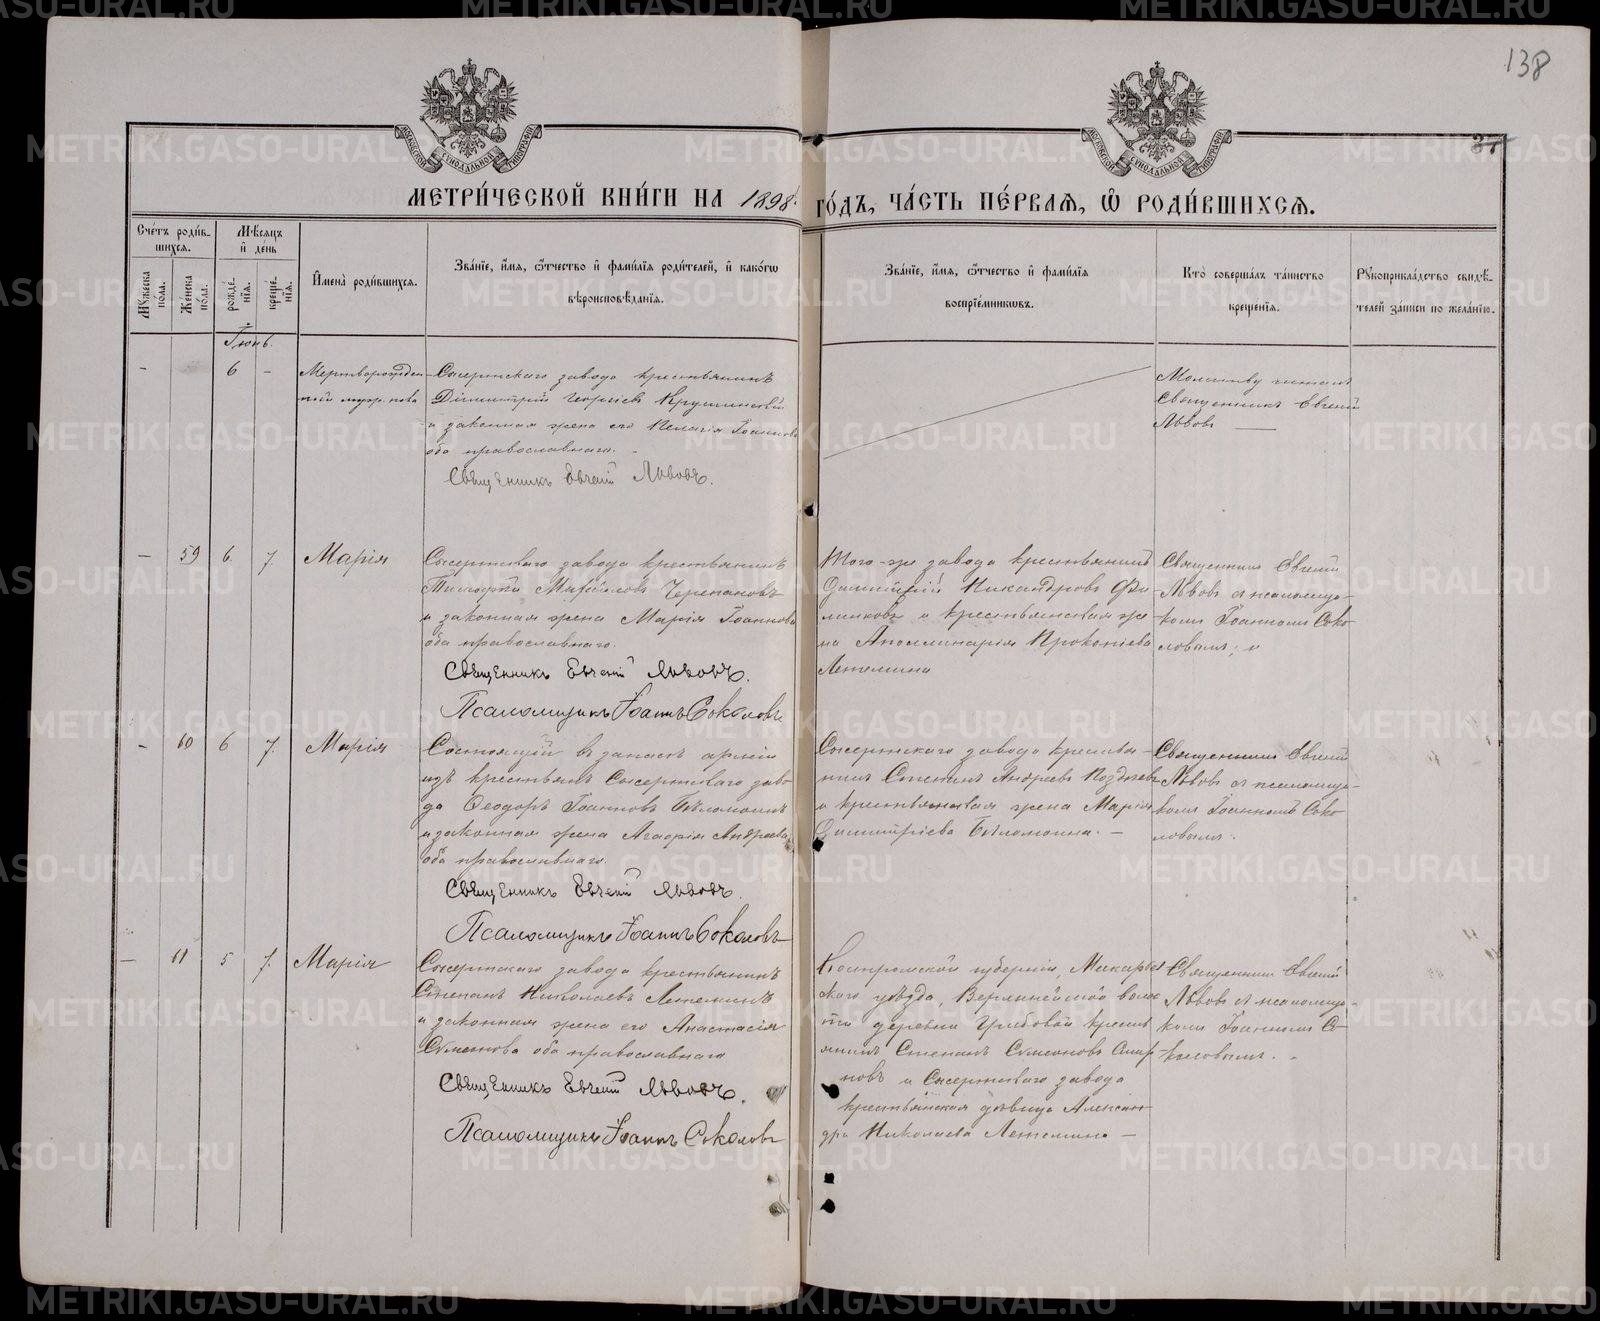 138
37
МЕТРИ́ЧЕСКОЙ КНИ́ГИ НА 1898 ГО́ДЪ, ЧА́СТЬ ПЕ́РВАЯ, Ѿ РОДИ́ВШИХСЯ.
Сче́тъ роди́в-
шихся.
Мѣ́сяцъ
и҆ де́нь
Му́жеска
по́ла.
Же́нска
по́ла.
рожде́-
нїя.
креще́-
нїя.
И҆мена̀ роди́вшихся.
Зва́нїе, и҆́мя, ѻ҆́тчество и҆ фами́лїя роди́телей, и҆ како́гѡ
вѣроисповѣ́данїя.
Зва́нїе, и҆́мя, ѻ҆́тчество и҆ фами́лїя
воспрїе́мниковъ.
Кто̀ соверша́лъ та́инство
креще́нїя.
Рꙋкоприкла́дство свидѣ́-
телей за́писи по жела́нїю.
Іюнь.
- 6 -
Мертворожден-
ный муж. пола
Сысертскаго завода крестьянинъ
Димитрій Георгіевъ
и законная жена его Пелагія Іоаннова
оба православнаго.
Священникъ Евгеній Львовъ.
Молитву читалъ
Священникъ Евгеній
Львовъ
- 59 6 7. Марія
Сысертскаго завода крестьянинъ
Тимофей Михайловъ Черепановъ
и законная жена Марія Іоаннова
оба православнаго.
Священникъ Евгеній Львовъ.
Псаломщикъ Іоаннъ Соколовъ
Того-же завода крестьянинъ
Димитрій Никандровъ Фи-
линковъ и крестьянская же-
на Аполлинарія Прокопіева
Летемина
Священникъ Евгеній
Львовъ съ псаломщи-
комъ Іоанномъ Соко-
ловымъ; и
- 60 6 7. Марія
Состоящій въ запасѣ арміи
изъ крестьянъ Сысертскаго заво-
да Ѳеодоръ Іоанновъ Бѣломоинъ
и законная жена Агафія Андреева
оба православнаго.
Священникъ Евгеній Львовъ.
Псаломщикъ Іоаннъ Соколовъ
Сысертскаго завода крестья-
нинъ Степанъ Андреевъ
и крестьянская жена Марія
Димитріева Бѣломоина. -
Священникъ Евгеній
Львовъ съ псаломщи-
комъ Іоанномъ Соко-
ловымъ.
- 61 5 7. Марія
Сысертскаго завода крестьянинъ
Степанъ Николаевъ Летеминъ
и законная жена его Анастасія
Сѵмеонова оба православнаго
Священникъ Евгеній Львовъ.
Псаломщикъ Іоаннъ Соколовъ
Костромской губерніи, Макарьев-
скаго уѣзда, волос-
ти деревни Грибовой кресть-
янинъ Степанъ Сѵмеоновъ Смир-
новъ и Сысертскаго завода
крестьянская дѣвица Алексан-
дра Николаева Летемина -
Священникъ Евгеній
Львовъ съ псаломщи-
комъ Іоанномъ Со-
коловымъ.
METRIKI.GASO-URAL.RU